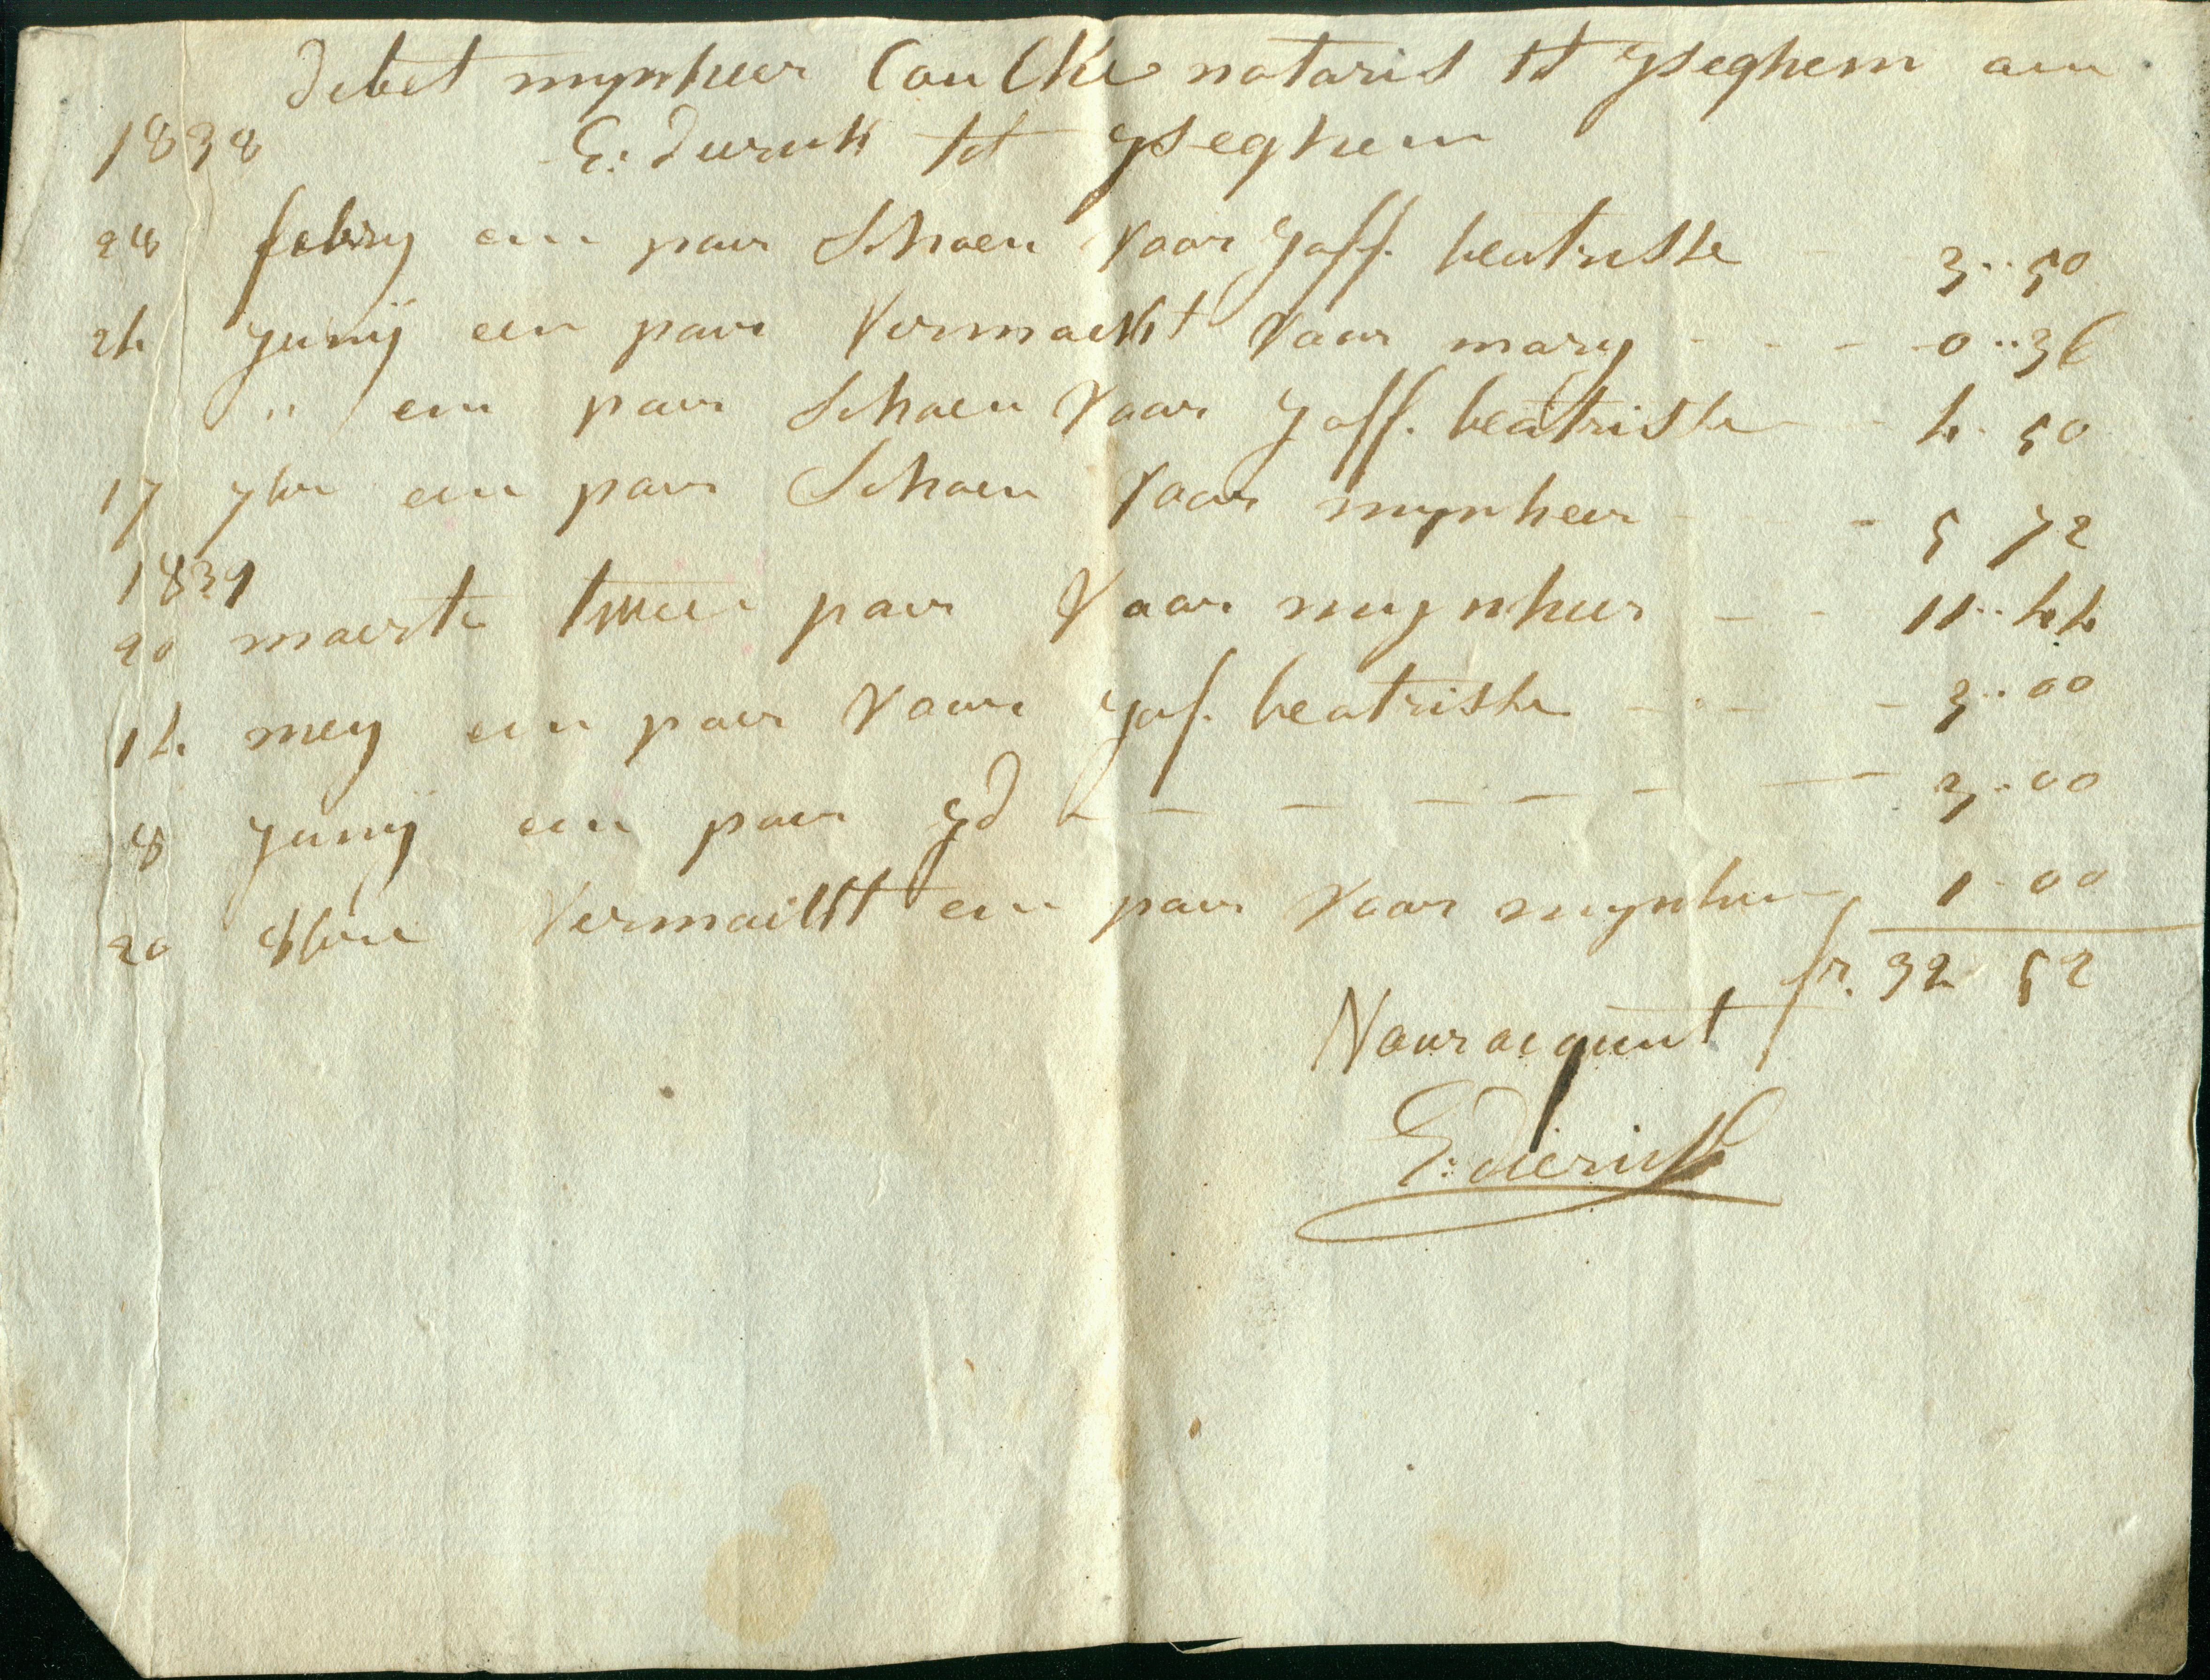 debet mynheer Coucke notaris tot yseghem aen
1838 E: dierick tot yseghem
28 febry een paer schoen voor Joff. beatriske 3..50
24 Junij een paer vermaekt voor mary - - - 0..36
" een paer schoen voor Joff. beatriske - - 4. 50
17 7bre een paer schoen voor mynheer - - - 5 72
1839
20 maerte twee paer voor mynheer - - 11..44
14 mey een paer voor Jof. beatriske - - - 3..00
8 Junij een paer yd - - - - - - - 3..00
20 8bre vermaekt een paer voor mynheer 1-00
fr. 32 52
Voor acquict
E: dierick